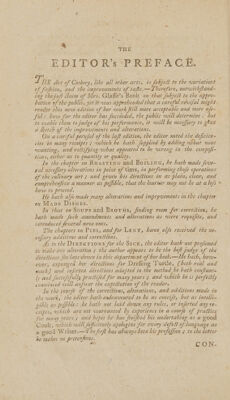 THE
EDITOR's PREFACE.
THE art of Cookery, like all other arts, is subject to the variations
of fashion, and the improvements of taste.—Therefore, notwithstand-
ing the just claim of Mrs. Glasse's Book on that subject to the appro-
bation of the public, yet it was apprehended that a careful revisal might
render this new edition of her work still more acceptable and more use-
ful: how far the editor has succeeded, the public will determine: but
to enable them to judge of his performance, it will be necessary to give
a sketch of the improvements and alterations.
On a careful perusal of the last edition, the editor noted the deficien-
cies in many receipts; which he hath supplied by adding what was
wanting, and rectifying what appeared to be wrong in the composi-
tion, either as to quantity or quality.
In the chapter on ROASTING and BOILING, he hath made seve-
ral necessary alterations in point of time, in performing those operations
of the culinary art; and given his directions in as plain, clear, and
comprehensive a manner as possible, that the learner may not be at a loss
how to proceed.
He hath also made many alterations and improvements in the chapter
on MADE DISHES.
In that on SOUPS and BROTHS, finding room for correction, he
hath made such amendments and alterations as were requisite, and
introduced several new ones.
The chapters on PIES, and for LENT, have also received the ne-
cessary additions and corrections.
As to the DIRECTIONS for the SICK, the editor hath not presumed
to make any alteration; the author appears to be the best judge of the
directions she lays down in this department of her book.—He hath, how-
ever, expunged her directions for Dressing Turtle, (both real and
mock) and inserted directions adapted to the method he hath constant-
ly and successfully practised for many years; and which he is perfectly
convinced will answer the expectation of the reader.
In the course of the corrections, alterations, and additions made in
the work, the editor hath endeavoured to be as concise, but as intelli-
gible as possible: he hath not laid down any rules, or inserted any re-
ceipts, which are not warranted by experience in a course of practice
for many years; and hopes he has finished his undertaking as a good
Cook, which will sufficiently apologize for every defect of language as
a good Writer.—The first has always been his profession; to the latter
he makes no pretensions.
CON-